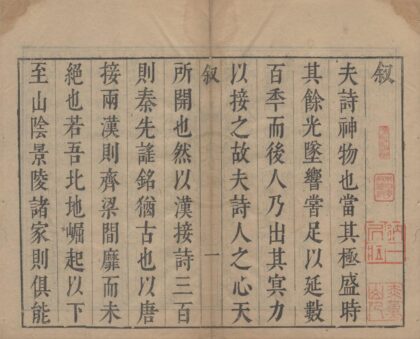 叙
夫詩神物也當其極盛時
其餘光墜響嘗足以延數
百年而後人乃出其冥力
以接之故夫詩人之心天
叙
一
所開也然以漢接詩三百
則秦先謠銘猶古也以唐
接兩漢則齊梁間靡而未
絕也若吾北地崛起以下
至山陰景陵諸家則俱能